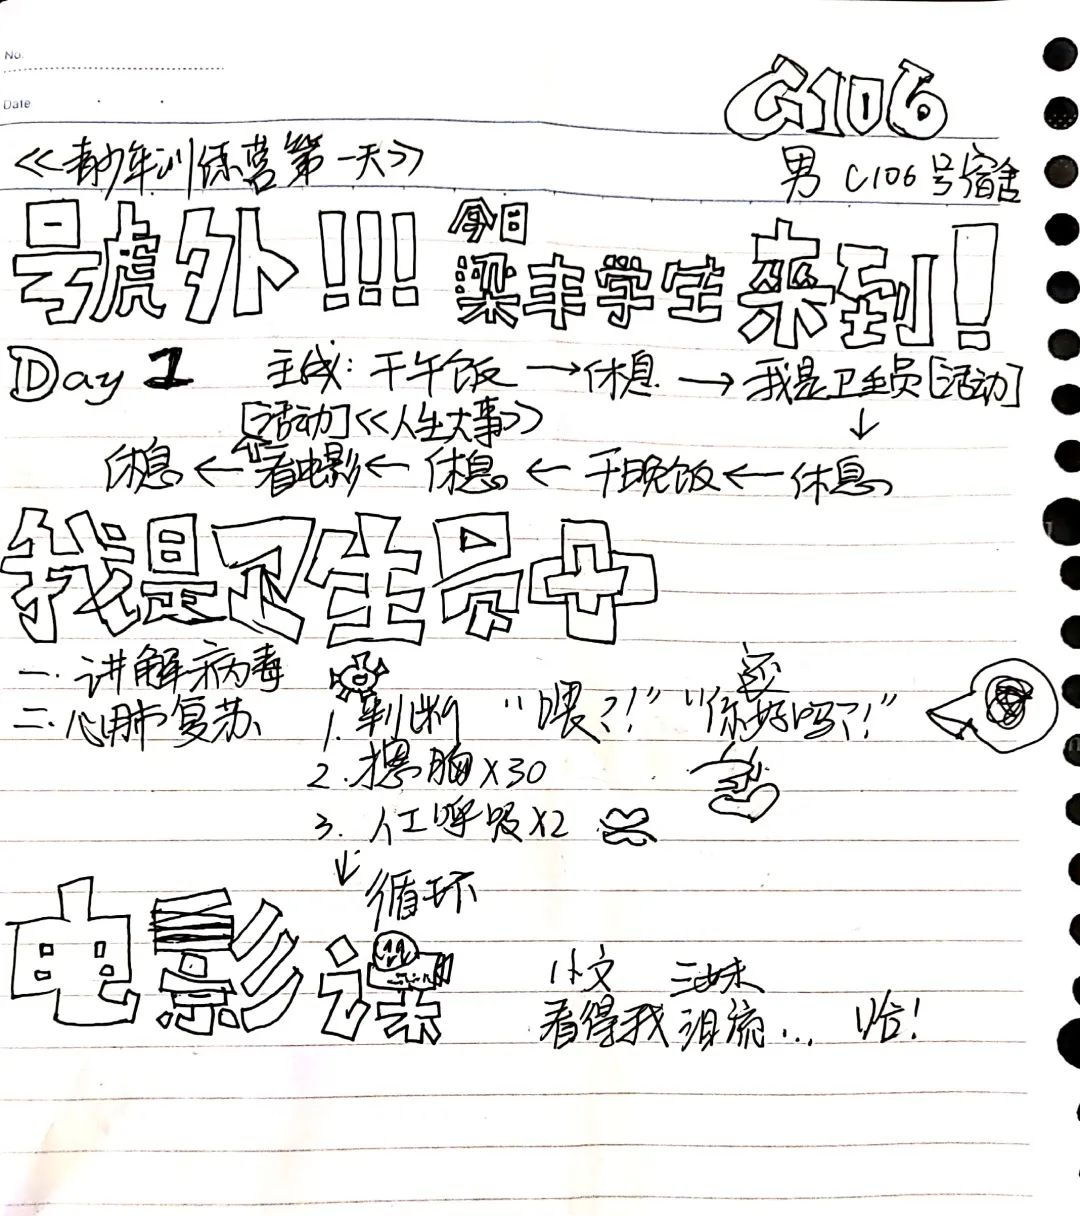 No.
Date
C106
<<青少年训练营第一天>>
男 C106号宿舍
号號外!!! 今日梁丰学生来到!
Day 1 主线: 干午饭 → 休息 → 我是卫生员[活动]
[活动]<<人生大事>>
休息 ← 看电影 ← 休息 ← 干晚饭 ← 休息
我是卫生员
一. 讲解病毒
二. 心肺复苏
1. 判断 "喂?!" "你还好吗?!"
2. 摁胸 X30
3. 人工呼吸 X2
↓ 循环
电影课
小文 三妹
看得我泪流... 哈!